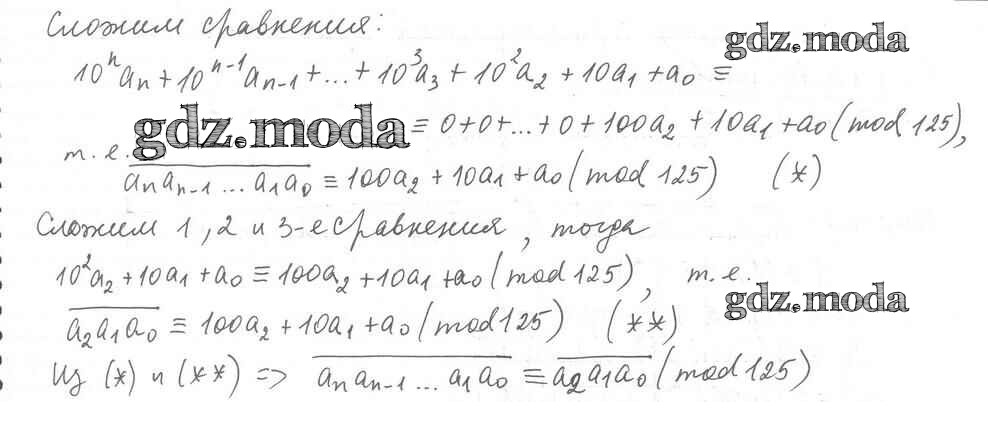 Сложим сравнения:
gdz.moda
10ⁿaₙ + 10ⁿ⁻¹aₙ₋₁ + ... + 10³a₃ + 10²a₂ + 10a₁ + a₀ ≡
gdz.moda ≡ 0+0+...+0+100a₂ + 10a₁ + a₀ (mod 125),
т.е.
a̅ₙa̅ₙ₋₁...a̅₁a̅₀ ≡ 100a₂ + 10a₁ + a₀ (mod 125) (*)
Сложим 1, 2 и 3-е сравнения, тогда
10²a₂ + 10a₁ + a₀ ≡ 100a₂ + 10a₁ + a₀ (mod 125), т.е.
gdz.moda
a̅₂a̅₁a̅₀ ≡ 100a₂ + 10a₁ + a₀ (mod 125) (**)
Из (*) и (**) => a̅ₙa̅ₙ₋₁...a̅₁a̅₀ ≡ a̅₂a̅₁a̅₀ (mod 125)